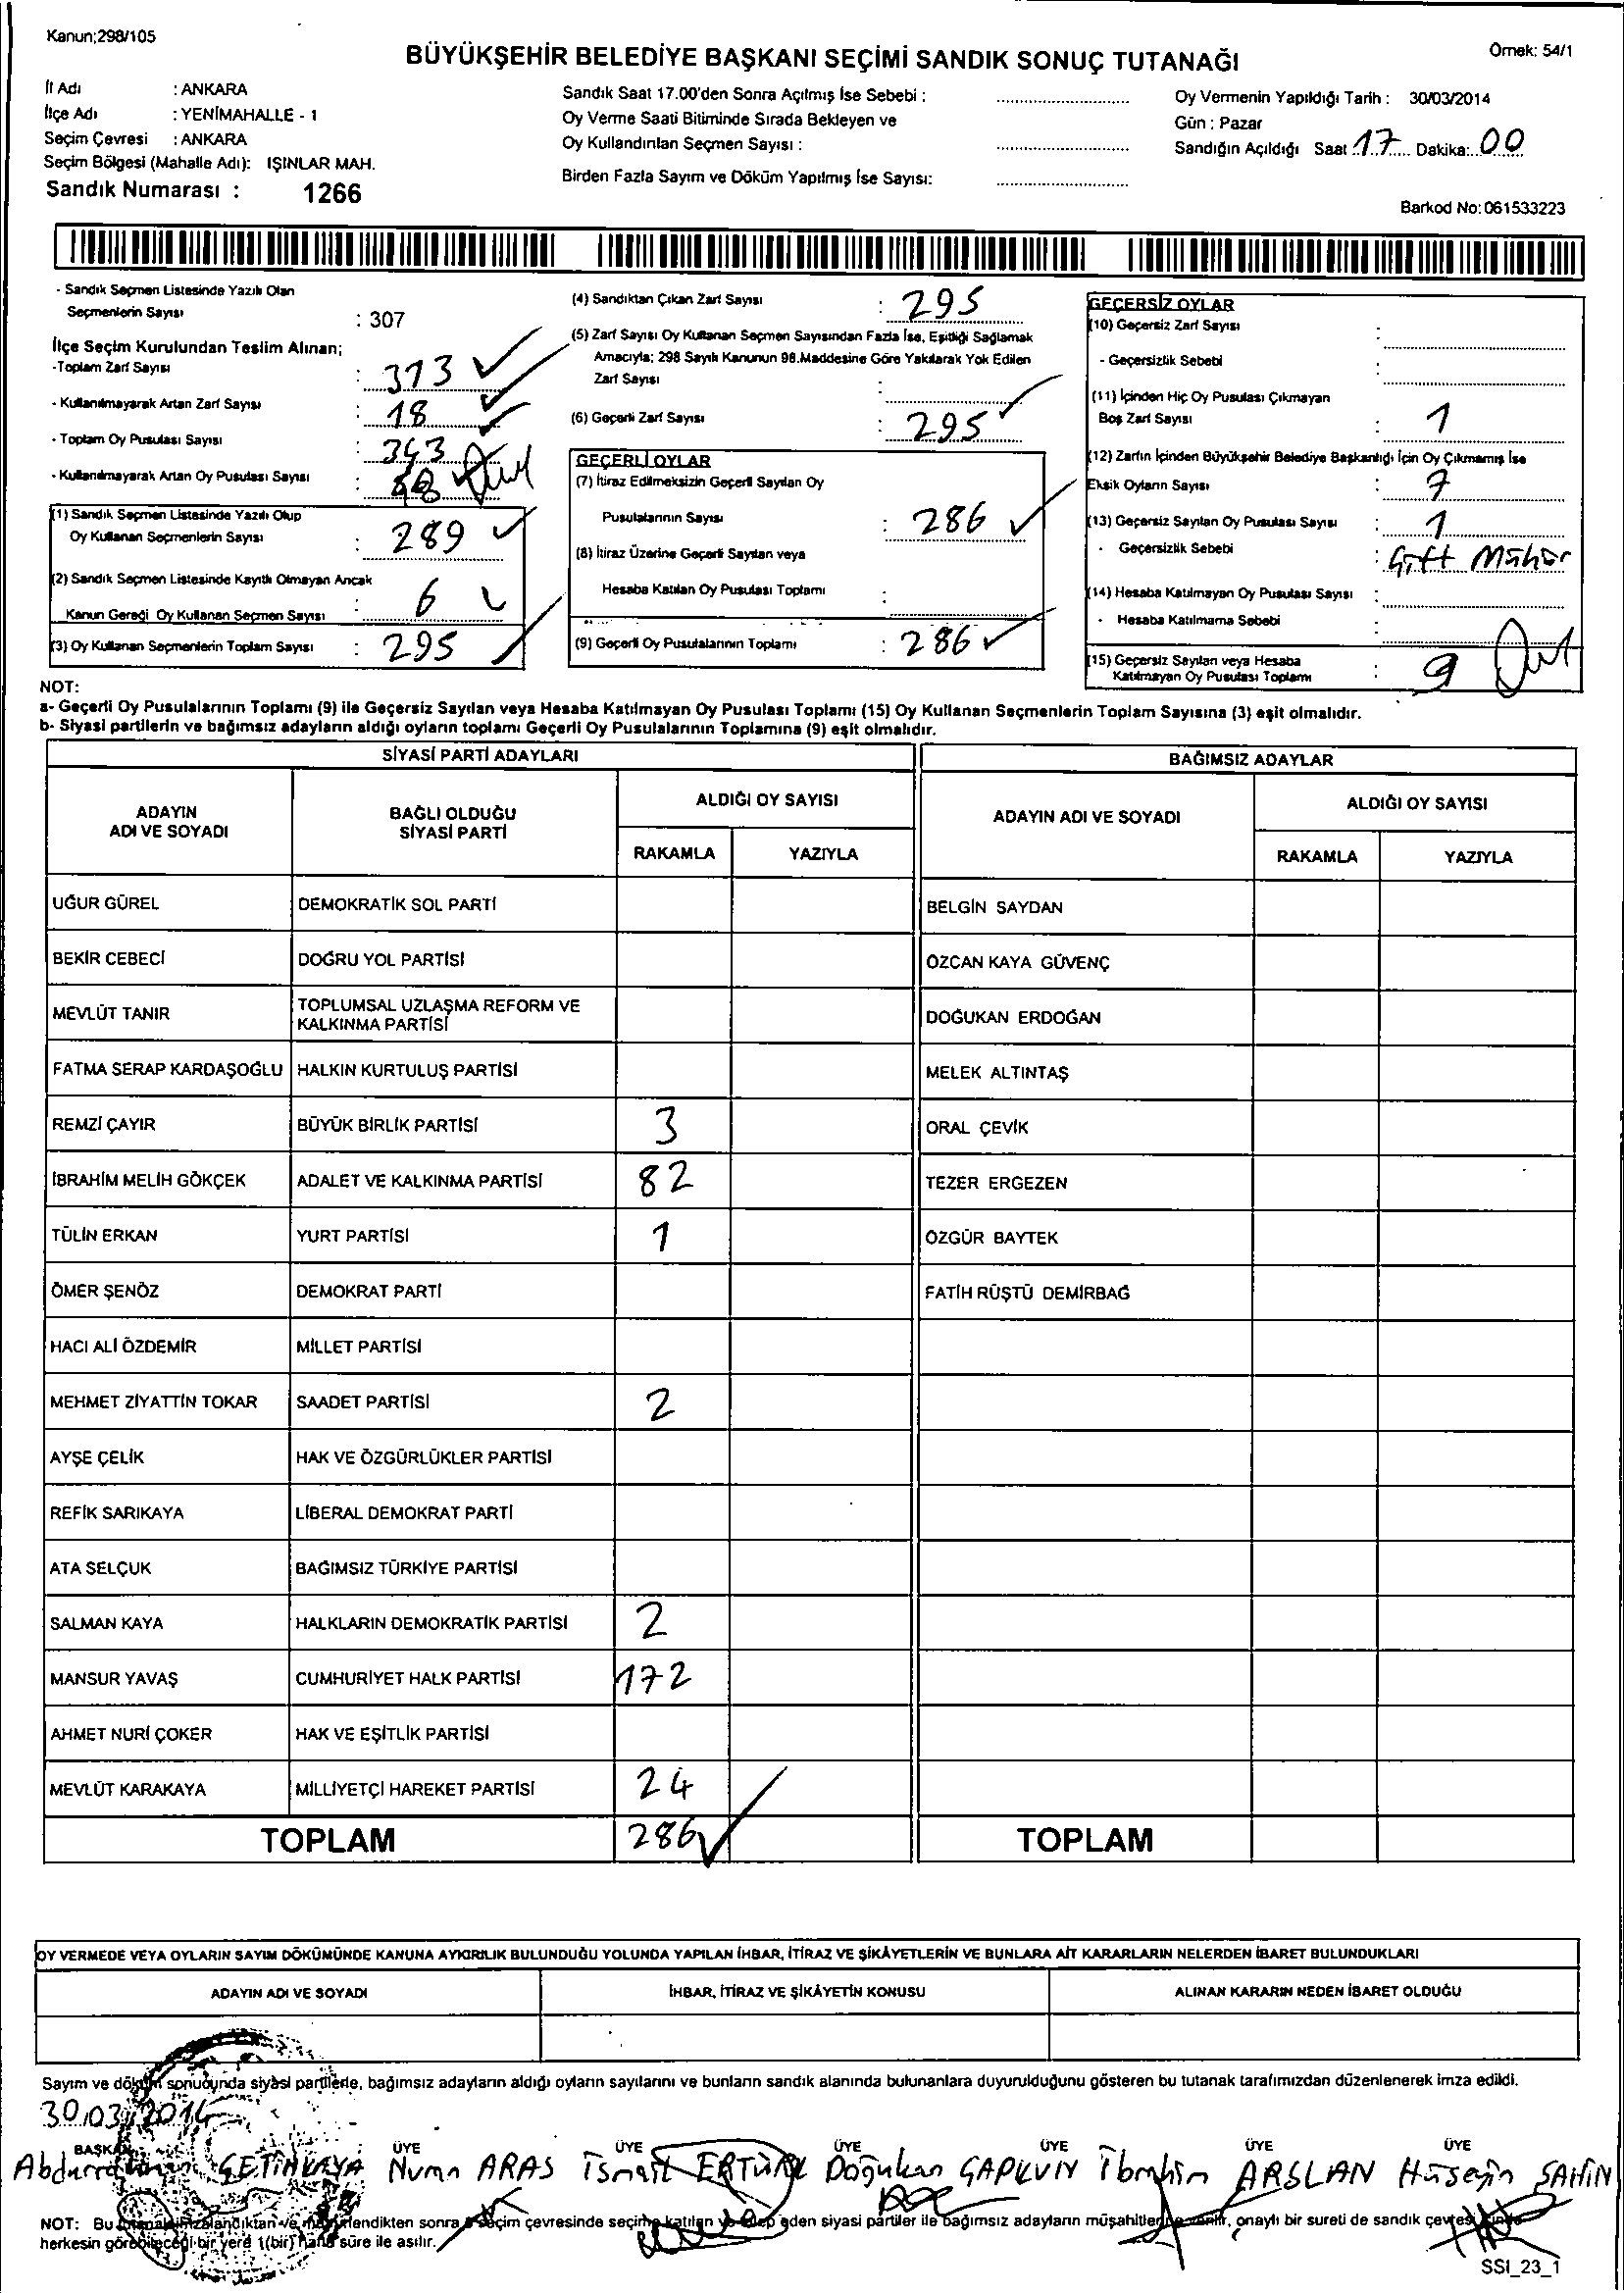 Kanun;298/105
BÜYÜKŞEHİR BELEDİYE BAŞKANI SEÇİMİ SANDIK SONUÇ TUTANAĞI
Örnek: 54/1
İl Adı : ANKARA
İlçe Adı : YENİMAHALLE - 1
Seçim Çevresi : ANKARA
Seçim Bölgesi (Mahalle Adı): IŞINLAR MAH.
Sandık Numarası : 1266
Sandık Saat 17.00'den Sonra Açılmış İse Sebebi :
Oy Verme Saati Bitiminde Sırada Bekleyen ve
Oy Kullandırılan Seçmen Sayısı :
Birden Fazla Sayım ve Döküm Yapılmış İse Sayısı:
Oy Vermenin Yapıldığı Tarih : 30/03/2014
Gün : Pazar
Sandığın Açıldığı Saat 17 Dakika: 00
Barkod No: 061533223
- Sandık Seçmen Listesinde Yazılı Olan
Seçmenlerin Sayısı : 307
İlçe Seçim Kurulundan Teslim Alınan;
-Toplam Zarf Sayısı : 313
- Kullanılmayarak Artan Zarf Sayısı : 18
- Toplam Oy Pusulası Sayısı : 343
- Kullanılmayarak Artan Oy Pusulası Sayısı :
(1) Sandık Seçmen Listesinde Yazılı Olup
Oy Kullanan Seçmenlerin Sayısı : 289
(2) Sandık Seçmen Listesinde Kayıtlı Olmayan Ancak
Kanun Gereği Oy Kullanan Seçmen Sayısı : 6
(3) Oy Kullanan Seçmenlerin Toplam Sayısı : 295
(4) Sandıktan Çıkan Zarf Sayısı : 295
(5) Zarf Sayısı Oy Kullanan Seçmen Sayısından Fazla İse, Eşitliği Sağlamak
Amacıyla; 298 Sayılı Kanunun 98.Maddesine Göre Yakılarak Yok Edilen
Zarf Sayısı :
(6) Geçerli Zarf Sayısı : 295
GEÇERLİ OYLAR
(7) İtiraz Edilmeksizin Geçerli Sayılan Oy
Pusulalarının Sayısı : 286
(8) İtiraz Üzerine Geçerli Sayılan veya
Hesaba Katılan Oy Pusulası Toplamı :
(9) Geçerli Oy Pusulalarının Toplamı : 286
GEÇERSİZ OYLAR
(10) Geçersiz Zarf Sayısı :
- Geçersizlik Sebebi :
(11) İçinden Hiç Oy Pusulası Çıkmayan
Boş Zarf Sayısı : 1
(12) Zarfın İçinden Büyükşehir Belediye Başkanlığı İçin Oy Çıkmamış İse
Eksik Oyların Sayısı : 7
(13) Geçersiz Sayılan Oy Pusulası Sayısı : 1
- Geçersizlik Sebebi : Çift Mühür
(14) Hesaba Katılmayan Oy Pusulası Sayısı :
- Hesaba Katılmama Sebebi :
(15) Geçersiz Sayılan veya Hesaba
Katılmayan Oy Pusulası Toplamı : 9
NOT:
a- Geçerli Oy Pusulalarının Toplamı (9) ile Geçersiz Sayılan veya Hesaba Katılmayan Oy Pusulası Toplamı (15) Oy Kullanan Seçmenlerin Toplam Sayısına (3) eşit olmalıdır.
b- Siyasi partilerin ve bağımsız adayların aldığı oyların toplamı Geçerli Oy Pusulalarının Toplamına (9) eşit olmalıdır.
SİYASİ PARTİ ADAYLARI
BAĞIMSIZ ADAYLAR
ADAYIN ADI VE SOYADI
BAĞLI OLDUĞU SİYASİ PARTİ
ALDIĞI OY SAYISI
ADAYIN ADI VE SOYADI
ALDIĞI OY SAYISI
RAKAMLA YAZIYLA RAKAMLA YAZIYLA
UĞUR GÜREL DEMOKRATİK SOL PARTİ BELGİN SAYDAN
BEKİR CEBECİ DOĞRU YOL PARTİSİ ÖZCAN KAYA GÜVENÇ
MEVLÜT TANIR TOPLUMSAL UZLAŞMA REFORM VE KALKINMA PARTİSİ DOĞUKAN ERDOĞAN
FATMA SERAP KARDAŞOĞLU HALKIN KURTULUŞ PARTİSİ MELEK ALTINTAŞ
REMZİ ÇAYIR BÜYÜK BİRLİK PARTİSİ 3 ORAL ÇEVİK
İBRAHİM MELİH GÖKÇEK ADALET VE KALKINMA PARTİSİ 82 TEZER ERGEZEN
TÜLİN ERKAN YURT PARTİSİ 1 ÖZGÜR BAYTEK
ÖMER ŞENÖZ DEMOKRAT PARTİ FATİH RÜŞTÜ DEMİRBAĞ
HACI ALİ ÖZDEMİR MİLLET PARTİSİ
MEHMET ZİYATTİN TOKAR SAADET PARTİSİ 2
AYŞE ÇELİK HAK VE ÖZGÜRLÜKLER PARTİSİ
REFİK SARIKAYA LİBERAL DEMOKRAT PARTİ
ATA SELÇUK BAĞIMSIZ TÜRKİYE PARTİSİ
SALMAN KAYA HALKLARIN DEMOKRATİK PARTİSİ 2
MANSUR YAVAŞ CUMHURİYET HALK PARTİSİ 172
AHMET NURİ ÇOKER HAK VE EŞİTLİK PARTİSİ
MEVLÜT KARAKAYA MİLLİYETÇİ HAREKET PARTİSİ 24
TOPLAM 286 TOPLAM
OY VERMEDE VEYA OYLARIN SAYIM DÖKÜMÜNDE KANUNA AYKIRILIK BULUNDUĞU YOLUNDA YAPILAN İHBAR, İTİRAZ VE ŞİKÂYETLERİN VE BUNLARA AİT KARARLARIN NELERDEN İBARET BULUNDUKLARI
ADAYIN ADI VE SOYADI İHBAR, İTİRAZ VE ŞİKÂYETİN KONUSU ALINAN KARARIN NEDEN İBARET OLDUĞU
Sayım ve döküm sonucunda siyasi partilerle, bağımsız adayların aldığı oyların sayılarını ve bunların sandık alanında bulunanlara duyurulduğunu gösteren bu tutanak tarafımızdan düzenlenerek imza edildi.
30/03/2014
BAŞKAN ÜYE ÜYE ÜYE ÜYE ÜYE ÜYE
Abdurrahman ÇETİNKAYA Numan ARAS İsmail ERTÜRK Doğukan ÇAPKUN İbrahim ARSLAN Hüseyin ŞAHİN
NOT: Bu tutanak imzalandıktan ve mühürlendikten sonra seçim çevresinde seçime katılan ve talep eden siyasi partiler ile bağımsız adayların müşahitlerine verilir, onaylı bir sureti de sandık çevresinde
herkesin görebileceği bir yere 1(bir) hafta süre ile asılır.
SSI_23_1